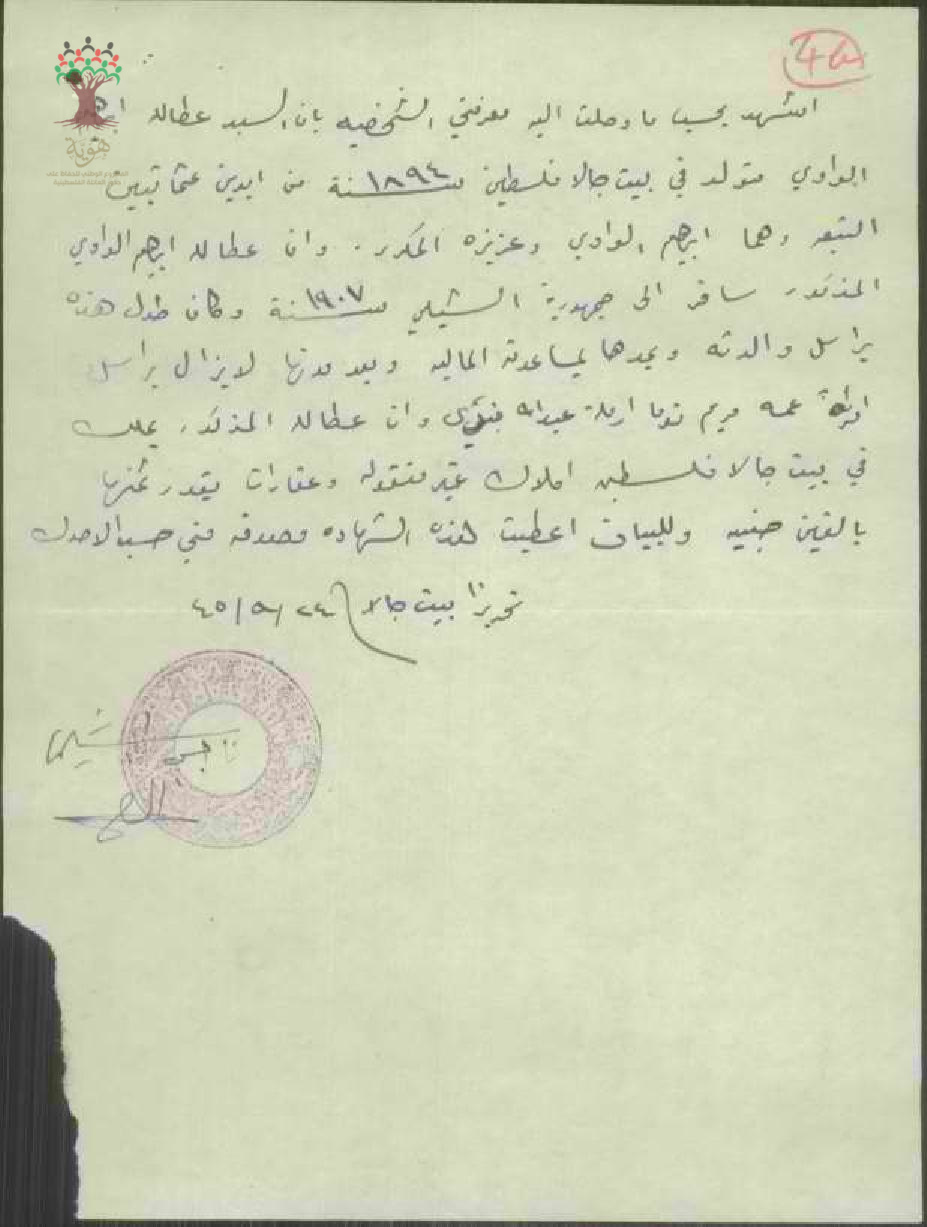 4a
اشهد بحسب ما وصلت اليه معرفتي الشخصيه بان السيد عطالله
الواوي متولد في بيت جالا فلسطين سنة ١٨٩٤ من ابوين عثمانيين
التبعه وهما ابرهيم الواوي وعزيزه المكرر. وان عطالله ابرهيم الواوي
المذكور سافر الى جمهورية الشيلي سنة ١٩٠٧ وكان طول هذه
يراسل والدته ويمدها بمساعدته الماليه وبعد موتها لا يزال يراسل
امرأة عمه مريم توما ارملة عبدالله وان عطالله المذكور يملك
في بيت جالا فلسطين املاك غير منقوله وعقارات يقدر ثمنها
بالفين جنيه وللبيان اعطيت هذه الشهاده مصدقه مني حسب الاصول
تحريرًا بيت جالا ٢٤/٥/٤٥
هوية